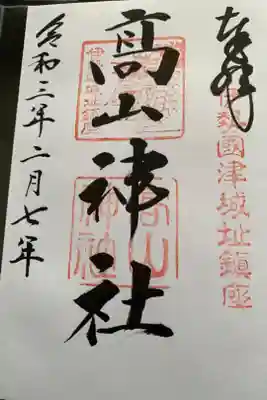 奉拝
伊勢國津城址鎮座
高山神社
高山神社
令和三年二月七年